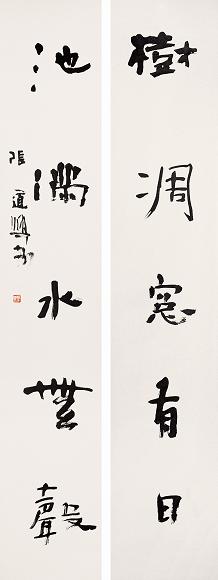 樹凋窓有日
池滿水無聲
張道興書